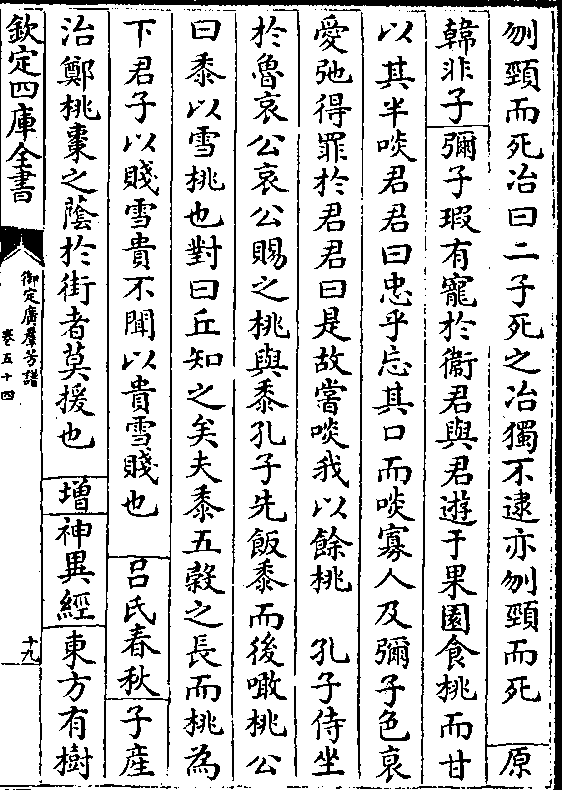 刎頸而死冶曰二子死之冶獨不逮亦刎頸而死　原
韓非子彌子瑕有寵於衞君與君遊于果園食桃而甘
以其半啖君君曰忠乎忘其口而啖寡人及彌子色衰
愛弛得罪於君君曰是故嘗啖我以餘桃　孔子侍坐
於魯哀公哀公賜之桃與黍孔子先飯黍而後噉桃公
曰黍以雪桃也對曰丘知之矣夫黍五穀之長而桃為
下君子以賤雪貴不聞以貴雪賤也　吕氏春秋子産
治鄭桃棗之蔭於街者莫援也　增神異經東方有樹
欽定四庫全書
御定廣羣芳譜
卷五十四
十九